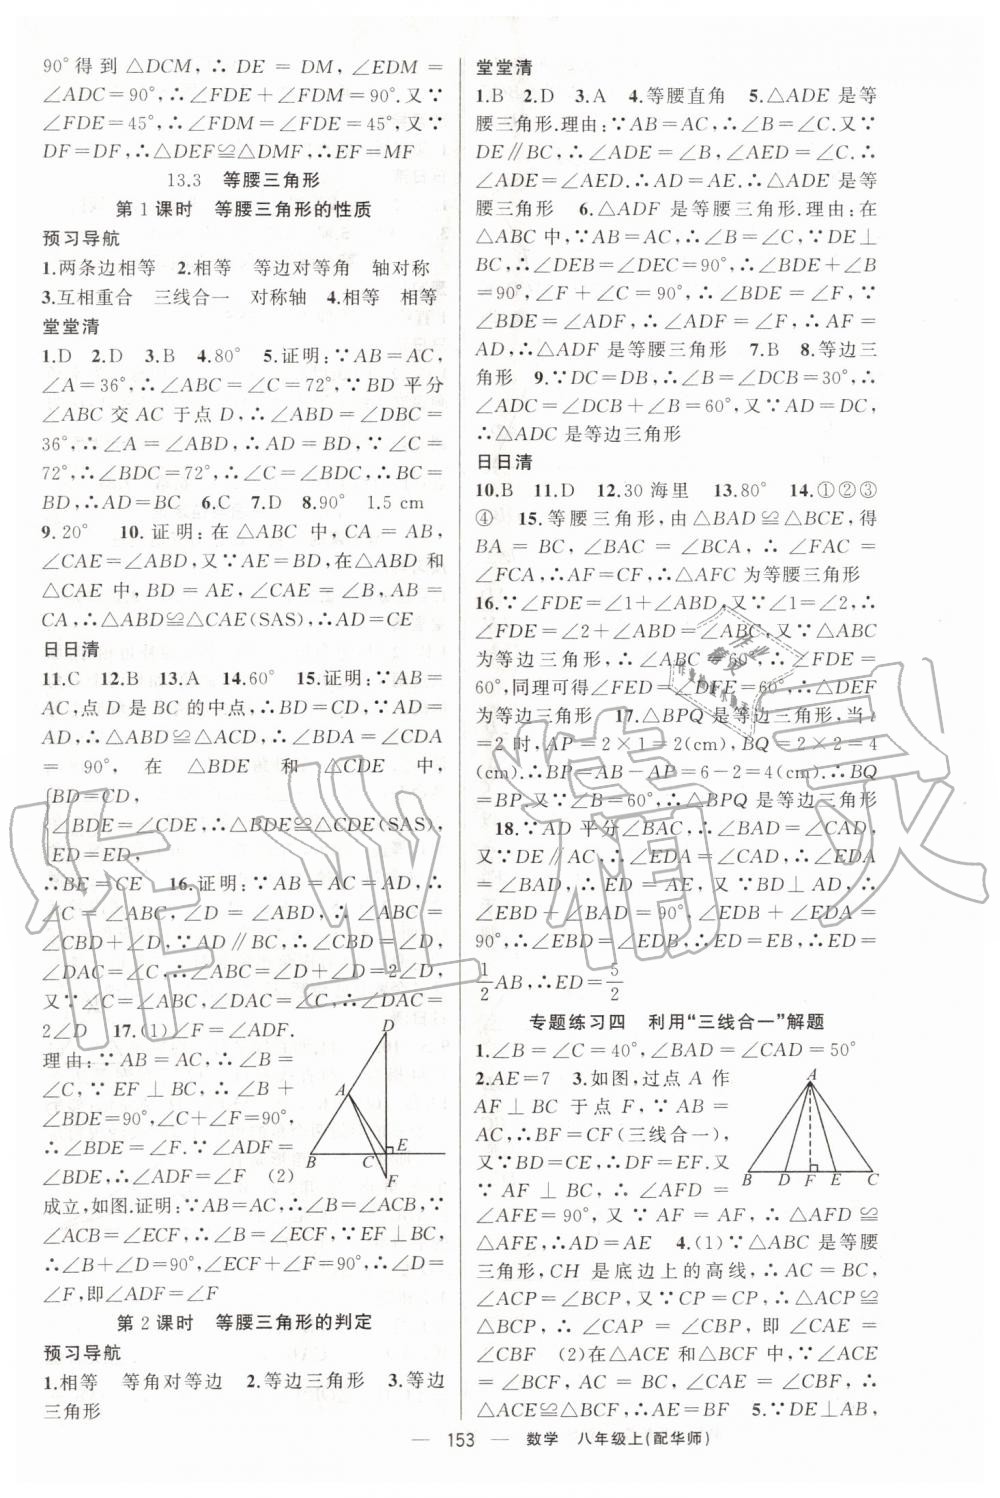 90°得到△DCM,∴DE=DM,∠EDM=
∠ADC=90°,∴∠FDE+∠FDM=90°.又∵
∠FDE=45°,∴∠FDM=∠FDE=45°,又∵
DF=DF,∴△DEF≌△DMF,∴EF=MF
13.3 等腰三角形
第1课时 等腰三角形的性质
预习导航
1.两条边相等 2.相等 等边对等角 轴对称
3.互相重合 三线合一 对称轴 4.相等 相等
堂堂清
1.D 2.D 3.B 4.80° 5.证明:∵AB=AC,
∠A=36°,∴∠ABC=∠C=72°,∵BD平分
∠ABC交AC于点D,∴∠ABD=∠DBC=
36°,∴∠A=∠ABD,∴AD=BD,∵∠C=
72°,∴∠BDC=72°,∴∠C=∠BDC,∴BC=
BD,∴AD=BC 6.C 7.D 8.90° 1.5 cm
9.20° 10.证明:在△ABC中,CA=AB,
∠CAE=∠ABD,又∵AE=BD,在△ABD和
△CAE中,BD=AE,∠CAE=∠ABD,CA=
AB,∴△ABD≌△CAE(SAS),∴AD=CE
日日清
11.C 12.B 13.A 14.60° 15.证明:∵AB=
AC,点D是BC的中点,∴BD=CD,∵AD=
AD,∴△ABD≌△ACD,∴∠BDA=∠CDA
=90°,在△BDE和△CDE中,
{BD=CD,
∠BDE=∠CDE,∴△BDE≌△CDE(SAS),
ED=ED,
∴BE=CE 16.证明:∵AB=AC=AD,∴
∠C=∠ABC,∠D=∠ABD,∴∠ABC=
∠CBD+∠D,∵AD∥BC,∴∠CBD=∠D,
∠DAC=∠C,∴∠ABC=∠D+∠D=2∠D,
又∵∠C=∠ABC,∴∠DAC=∠C,∴∠DAC=
2∠D 17.(1)∠F=∠ADF.
理由:∵AB=AC,∴∠B=
∠C,∵EF⊥BC,∴∠B+
∠BDE=90°,∠C+∠F=90°,
∴∠BDE=∠F.∵∠ADF=
∠BDE,∴∠ADF=∠F (2)
成立,如图.证明:∵AB=AC,∴∠B=∠ACB,∵
∠ACB=∠ECF,∴∠B=∠ECF,∵EF⊥BC,
∴∠B+∠D=90°,∠ECF+∠F=90°,∴∠D=
∠F,即∠ADF=∠F
D
A
B
C
E
F
第2课时 等腰三角形的判定
预习导航
1.相等 等角对等边 2.等边三角形 3.等边
三角形
堂堂清
1.B 2.D 3.A 4.等腰直角 5.△ADE是等
腰三角形.理由:∵AB=AC,∴∠B=∠C.又∵
DE∥BC,∴∠ADE=∠B,∠AED=∠C.∴
∠ADE=∠AED.∴AD=AE.∴△ADE是等腰
三角形 6.△ADF是等腰三角形.理由:在
△ABC中,∵AB=AC,∴∠B=∠C,∵DE⊥
BC,∴∠DEB=∠DEC=90°,∴∠BDE+∠B=
90°,∠F+∠C=90°,∴∠BDE=∠F,∵
∠BDE=∠ADF,∴∠ADF=∠F,∴AF=
AD,∴△ADF是等腰三角形 7.B 8.等边三
角形 9.∵DC=DB,∴∠B=∠DCB=30°,∴
∠ADC=∠DCB+∠B=60°,又∵AD=DC,
∴△ADC是等边三角形
日日清
10.B 11.D 12.30海里 13.80° 14.①②③
④ 15.等腰三角形,由△BAD≌△BCE,得
BA=BC,∠BAC=∠BCA,∴∠FAC=
∠FCA,∴AF=CF,∴△AFC为等腰三角形
16.∵∠FDE=∠1+∠ABD,又∵∠1=∠2,∴
∠FDE=∠2+∠ABD=∠ABC,又∵△ABC
为等边三角形,∴∠ABC=60°,∴∠FDE=
60°,同理可得∠FED=∠DFE=60°,∴△DEF
为等边三角形 17.△BPQ是等边三角形,当t
=2时,AP=2×1=2(cm),BQ=2×2=4
(cm).∴BP=AB-AP=6-2=4(cm).∴BQ
=BP,又∵∠B=60°,∴△BPQ是等边三角形
18.∵AD平分∠BAC,∴∠BAD=∠CAD,
又∵DE∥AC,∴∠EDA=∠CAD,∴∠EDA=
∠EAD,∴ED=EA,又∵BD⊥AD,∴
∠EBD+∠BAD=90°,∠EDB+∠EDA=
90°,∴∠EBD=∠EDB,∴ED=EB,∴ED=
1/2AB,∴ED=5/2
专题练习四 利用“三线合一”解题
1.∠B=∠C=40°,∠BAD=∠CAD=50°
2.AE=7 3.如图,过点A作
AF⊥BC于点F,∵AB=
AC,∴BF=CF(三线合一),
又∵BD=CE,∴DF=EF.又
∵AF⊥BC,∴∠AFD=
∠AFE=90°,又∵AF=AF,∴△AFD≌
△AFE,∴AD=AE 4.(1)∵△ABC是等腰
三角形,CH是底边上的高线,∴AC=BC,
∠ACP=∠BCP,又∵CP=CP,∴△ACP≌
△BCP,∴∠CAP=∠CBP,即∠CAE=
∠CBF (2)在△ACE和△BCF中,∵∠ACE
=∠BCF,AC=BC,∠CAE=∠CBF,∴
△ACE≌△BCF,∴AE=BF 5.∵AB=AC,
A
B D F E C
— 153 — 数学 八年级上(配华师)
作业精灵